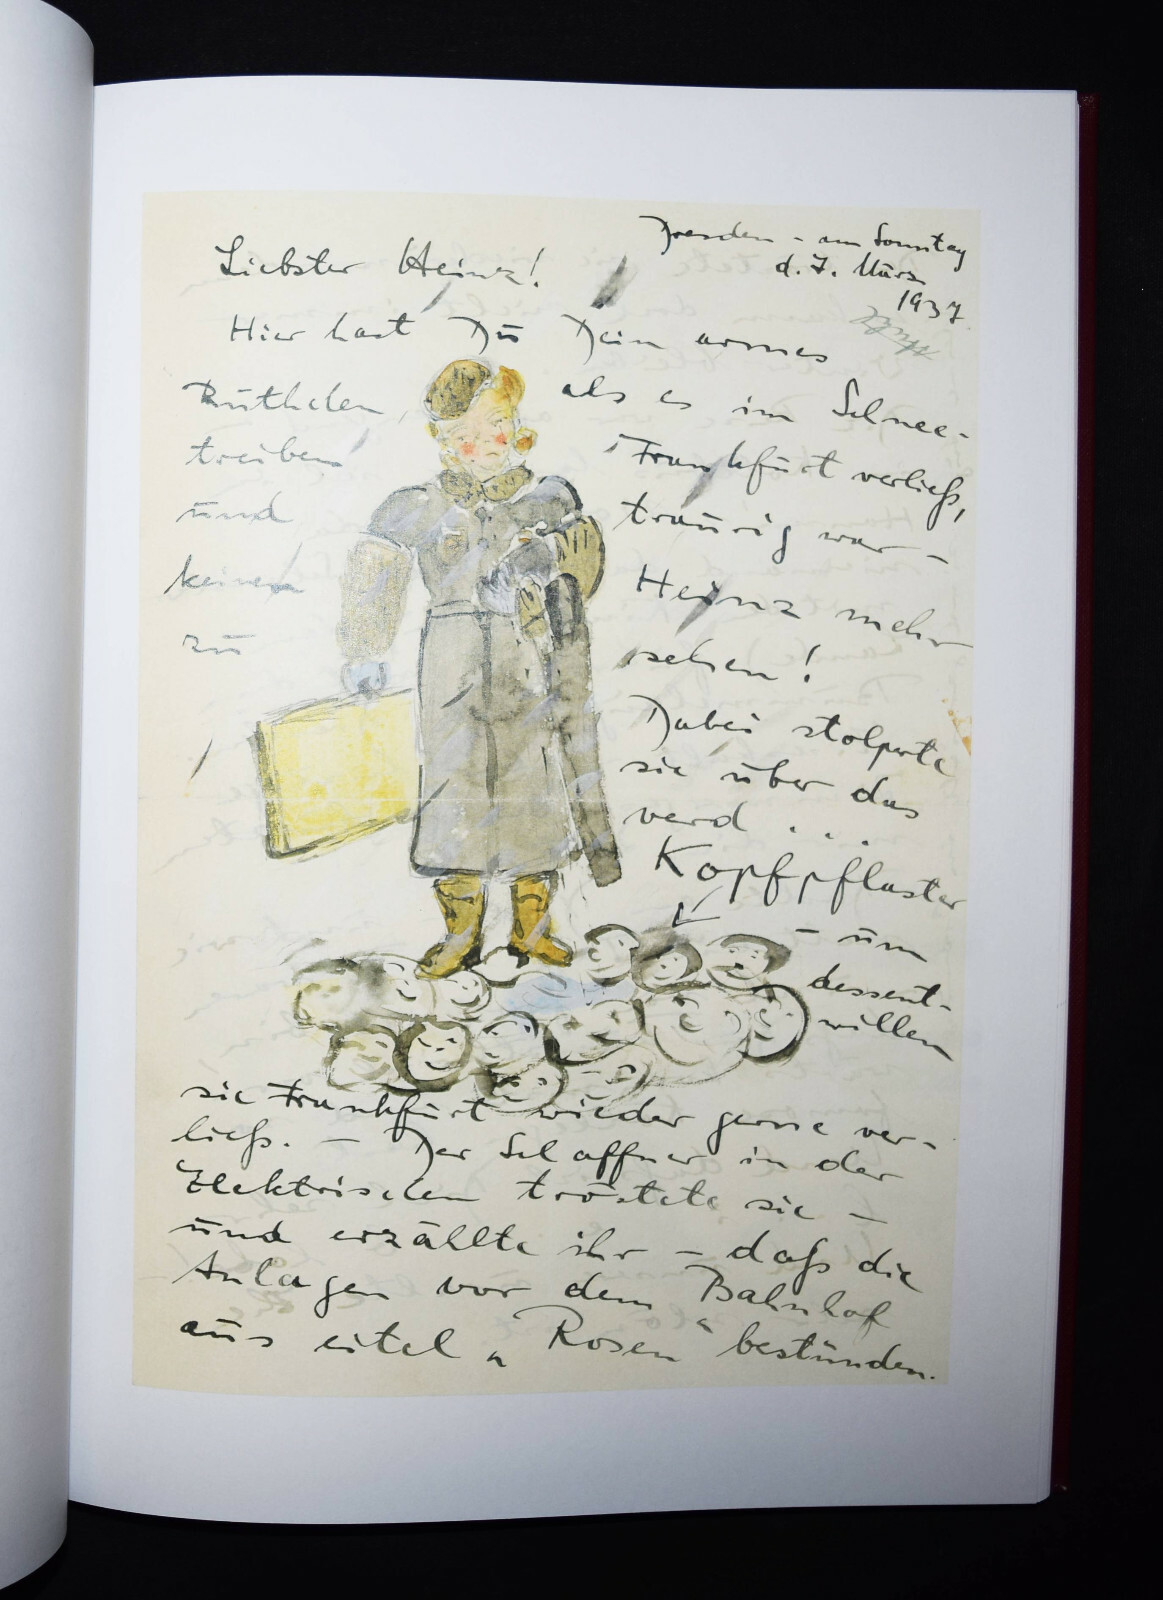 Dresden - am Sonntag
d. 7. März
1937
Liebster Heinz!
Hier hast Du Dein armes
Ruthchen, als es im Schnee-
treiben Frankfurt verließ,
und traurig war -
keinen Heinz mehr
zu sehen!
Dabei stolperte
sie über das
verd . . .
Kopfpflaster
- um
dessent-
willen
sie Frankfurt wieder gerne ver-
ließ. - Der Schaffner in der
Elektrischen tröstete sie -
und erzählte ihr - daß die
Anlagen vor dem Bahnhof
aus eitel „Rosen“ bestünden.